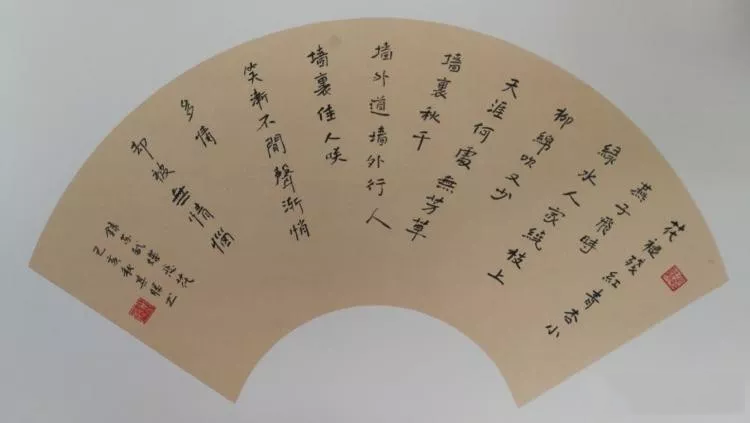 花褪殘紅青杏小
燕子飛時
綠水人家繞枝上
柳綿吹又少
天涯何處無芳草
墙裏秋千
墙外道墙外行人
墙裏佳人咲
笑漸不聞聲漸悄
多情
却被無情惱
錄蘇軾蝶戀花
己亥秋